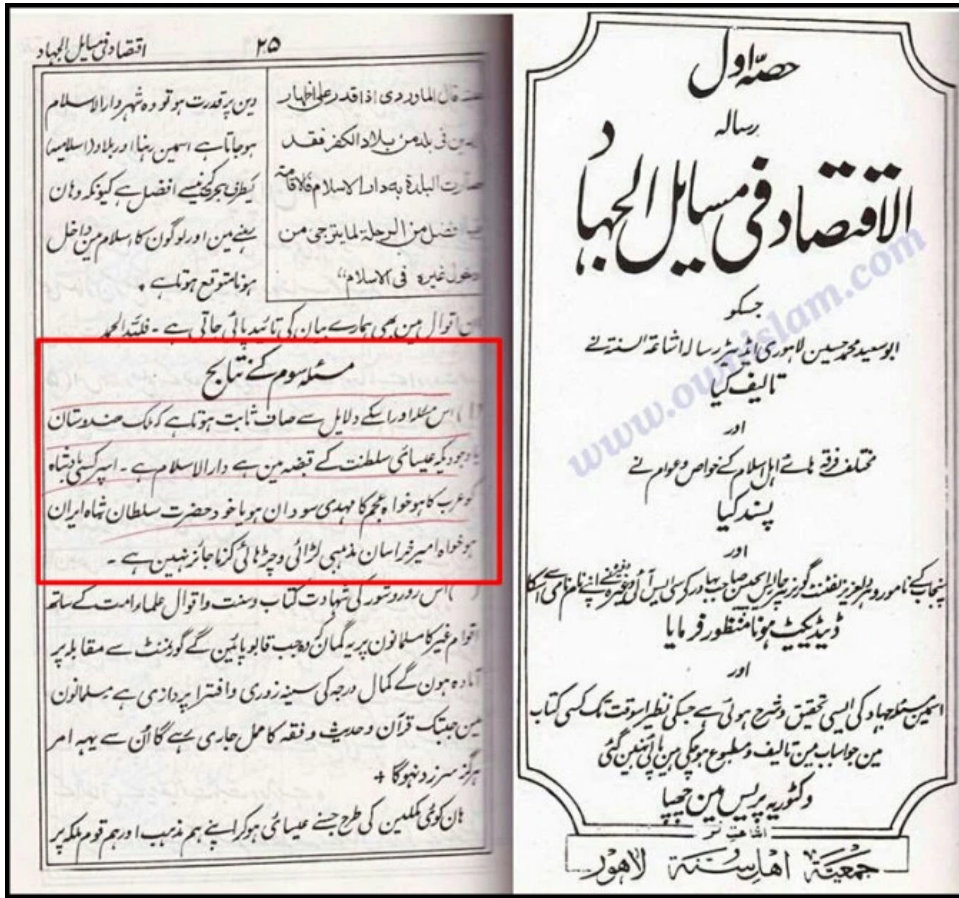 حصہ اول
رسالہ
الاقتصاد فی مسایل الجہاد
جسکو
ابوسعید محمد حسین لاہوری ایڈیٹر رسالہ اشاعۃ السنۃ نے
تالیف کیا
اور
مختلف فرقے ہائے اہل اسلام کے خواص و عوام نے
پسند کیا
اور
پنجاب کے نامور و ہر لعزیز لفٹنٹ گورنر سر چارلس ایچیسن صاحب بہادر کے سی ایس آئی وغیرہ نے اپنے نام نامی سے اسکا
ڈیڈیکیٹ ہونا منظور فرمایا
اور
اسمین مسئلہ جہاد کی ایسی تحقیق و شرح ہوئی ہے جسکی نظیر اسوقت تک کسی کتاب
مین جو اس باب مین تالیف و مطبوع ہوچکی ہین پائی نہین گئی
وکٹوریہ پریس مین چھپا
جمعیۃ اھل سنۃ لاھور
www.ownislam.com
اقتصاد فی مسایل الجہاد
۲۵
قال الماوردی اذا قدر علی اظہار
الدین فی بلد من بلاد الکفر فقد
صارت البلدۃ بہ دار الاسلام فالاقامۃ
فیہا افضل من الرحلۃ لما یترجی من
دخول غیرہ فی الاسلام"
دین پر قدرت ہو تو وہ شہر دار الاسلام
ہو جاتا ہے اسمین رہنا اور بلاد (اسلامیہ)
کیطرف ہجرت کرنیسے افضل ہے کیونکہ وہان
رہنے مین اور لوگون کا اسلام مین داخل
ہونا متوقع ہوتا ہے ۔
ان اقوال مین بھی ہمارے بیان کی تائید پائی جاتی ہے ۔ فللہ الحمد
مسئلہ سوم کے نتایج
(۱) اس مسئلہ اور اسکے دلایل سے صاف ثابت ہوتا ہے کہ ملک ھندوستان
باوجودیکہ عیسائی سلطنت کے قبضہ مین ہے دارالاسلام ہے ۔ اسپر کسی بادشاہ
کو عرب کا ہو خواہ عجم کا مہدی سوڈان ہو یا خود حضرت سلطان شاہ ایران
ہو خواہ امیر خراسان مذہبی لڑائی و چڑھائی کرنا جائز نہین ہے ۔
اس زور و شور کی شہادت کتاب و سنت و اقوال علماء امت کے ساتھ
اقوام غیر کا مسلمانون پر یہ گمان کہ وہ جب قابو پائین گے گورنمنٹ سے مقابلہ پر
آمادہ ہون گے کمال درجہ کی سینہ زوری و افترا پردازی ہے مسلمانون
مین جبتک قرآن و حدیث و فقہ کا عمل جاری رہے گا اُن سے یہہ امر
ہرگز سرزد نہوگا +
ہان کوئی مکلین کی طرح جسنے عیسائی ہو کر اپنے ہم مذہب اور ہم قوم ملکہ پر